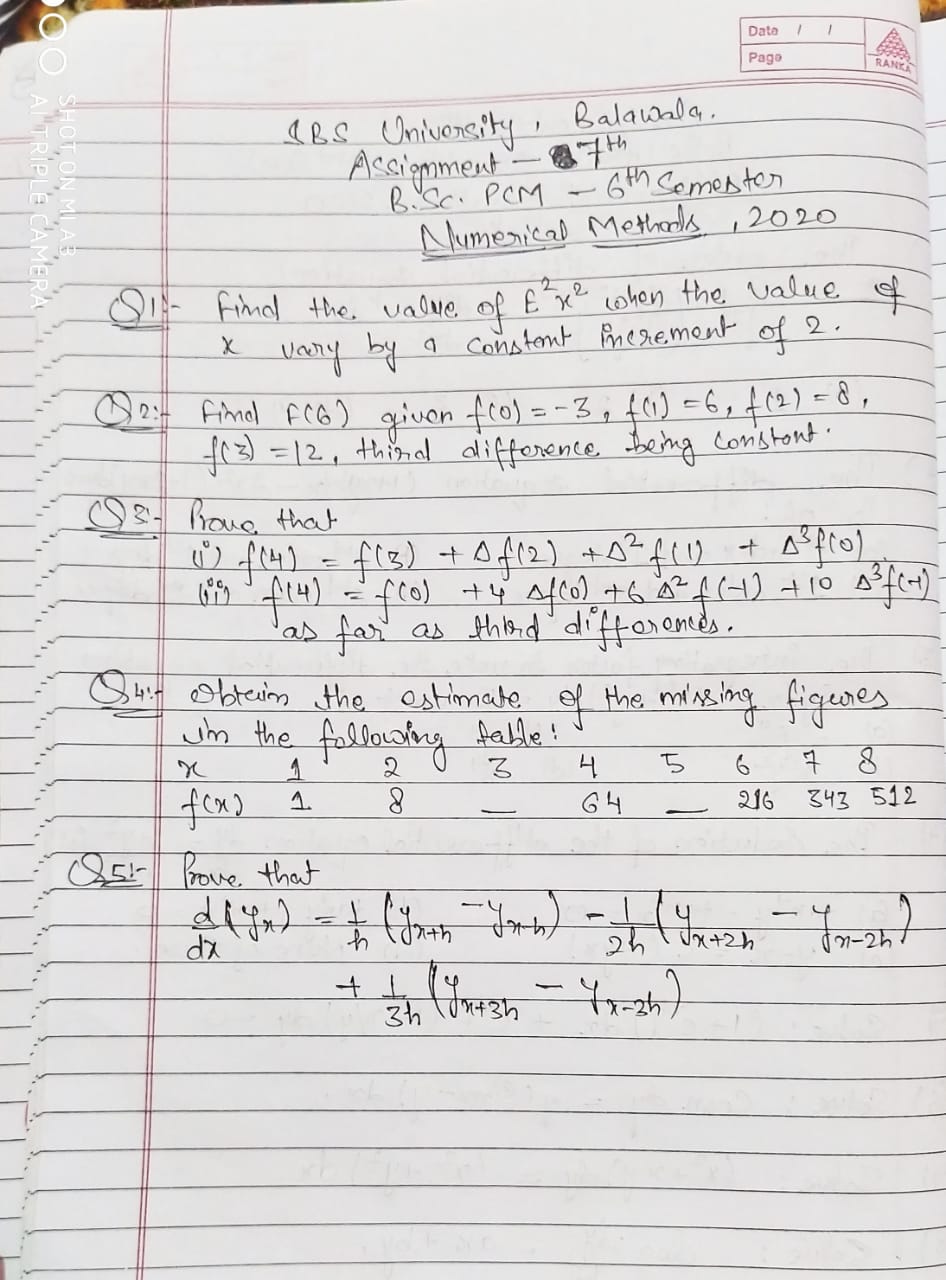 Date / /
Page
RANKA
SHOT ON MI A3
AI TRIPLE CAMERA
SBS University, Balawala.
Assignment - 7th
B.Sc. PCM - 6th Semester
Numerical Methods, 2020
Q1:- Find the value of E²x² when the value of
x vary by a constant increment of 2.
Q2:- Find f(6) given f(0) = -3, f(1) = 6, f(2) = 8,
f(3) = 12, third difference being constant.
Q3:- Prove that
(i) f(4) = f(3) + Δf(2) + Δ²f(1) + Δ³f(0)
(ii) f(4) = f(0) + 4 Δf(0) + 6 Δ²f(-1) + 10 Δ³f(-1)
as far as third differences.
Q4:- Obtain the estimate of the missing figures
in the following table:
x 1 2 3 4 5 6 7 8
f(x) 1 8 — 64 — 216 343 512
Q5:- Prove that
d/dx (yₓ) = 1/h (yₓ₊ₕ - yₓ₋ₕ) - 1/2h (yₓ₊₂ₕ - yₓ₋₂ₕ)
+ 1/3h (yₓ₊₃ₕ - yₓ₋₃ₕ)